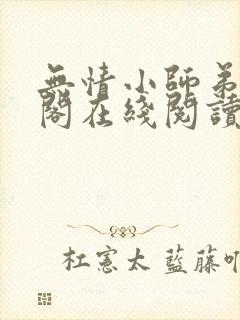 無情小師弟
閣在綫閱讀
杜憲太 藍藤